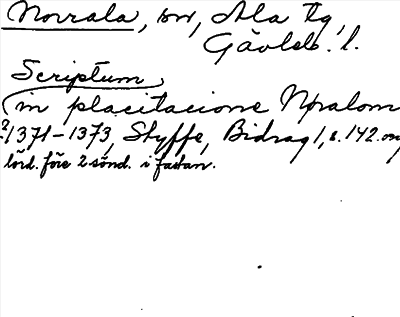 Norrala, sn, Ala tg,
Gävleb. l.
Scriptum
in placitacione Nøralom
? 1371-1373, Styffe, Bidrag 1, s. 142. om
lörd. före 2 sönd. i fastan.